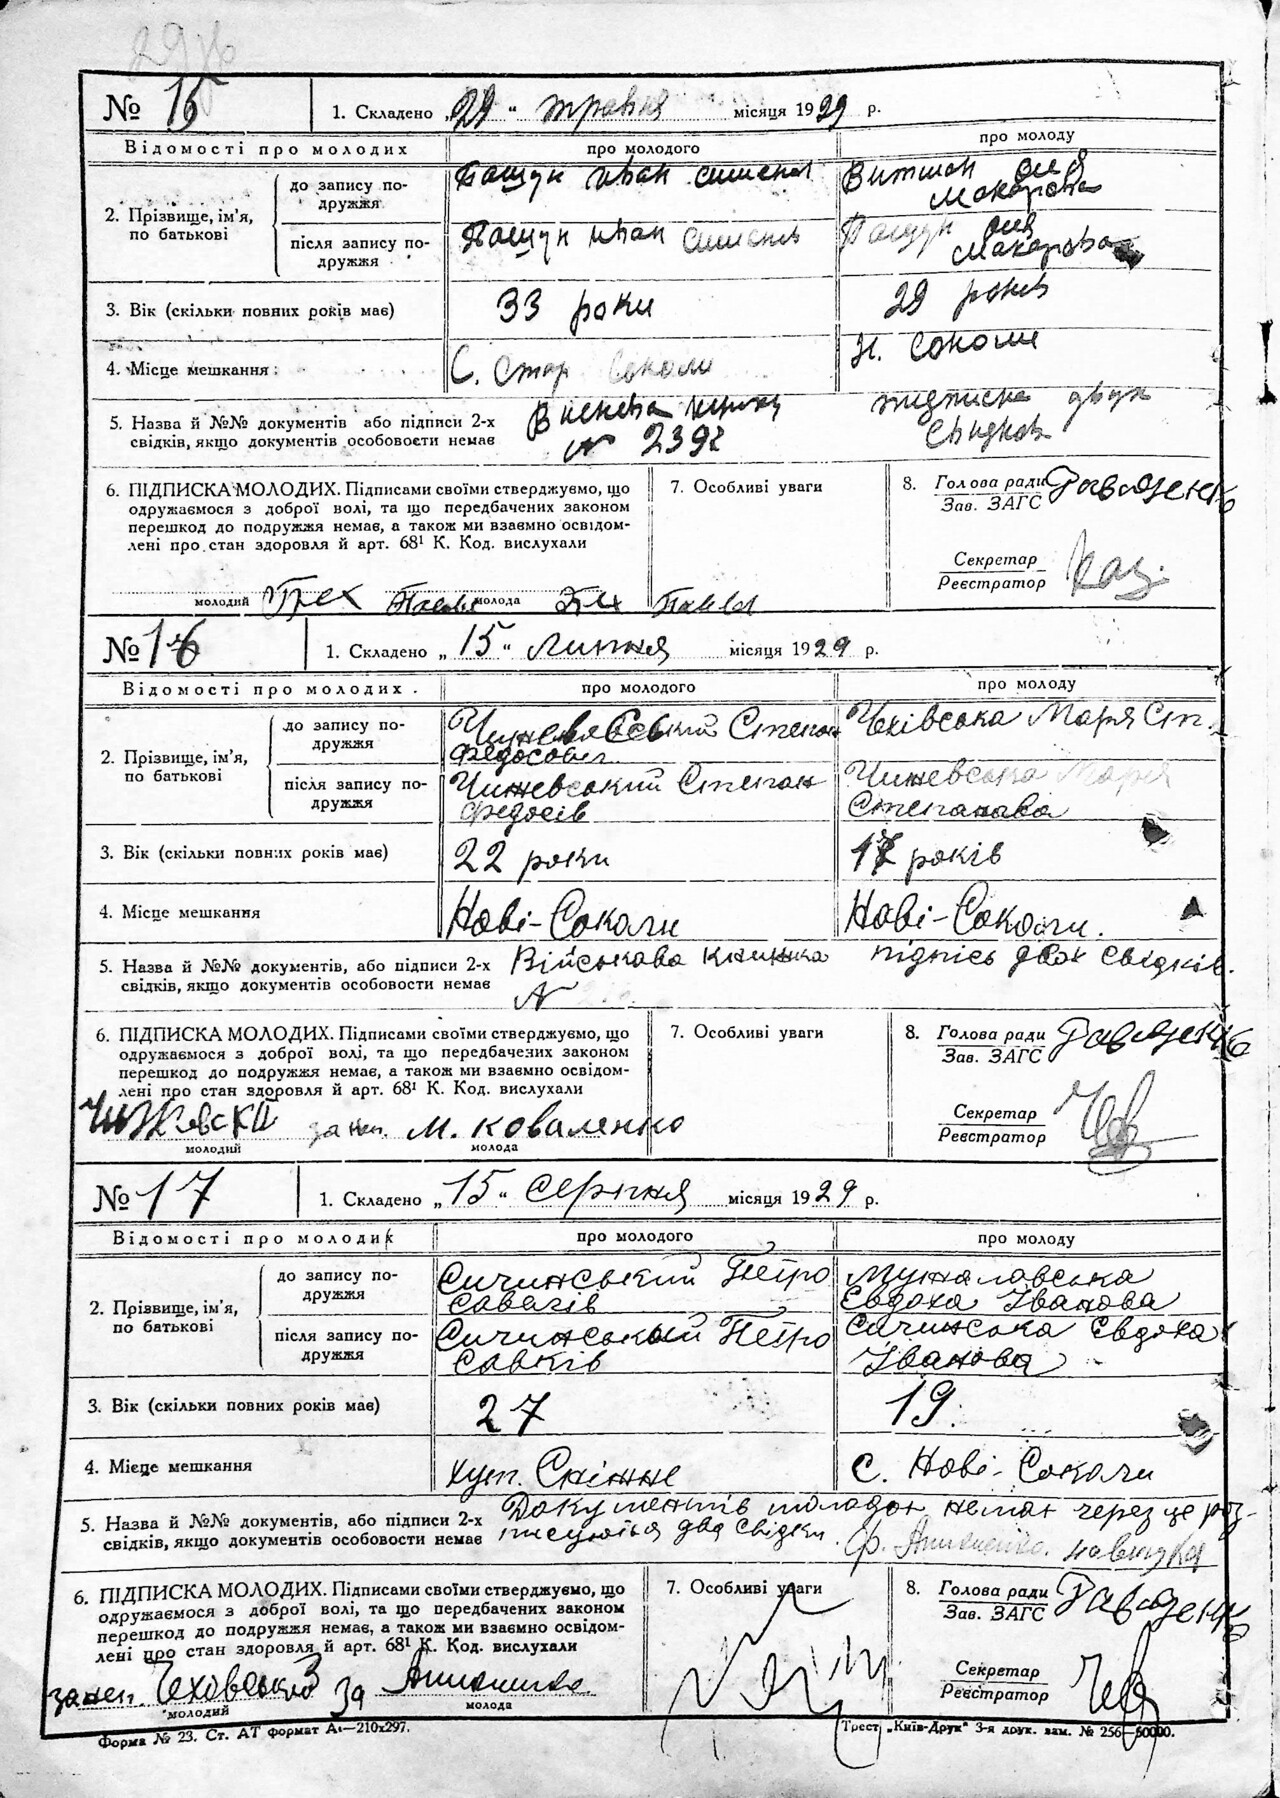 № 15
1. Складено „29“ травня місяця 1929 р.
Відомості про молодих
про молодого
про молоду
2. Прізвище, ім'я, по батькові
до запису подружжя
Пащук Іван
Макарова
після запису подружжя
Пащук Іван
Пащук
Макарова
3. Вік (скільки повних років має)
33 роки
29 років
4. Місце мешкання
С. Стар Соколи
Н. Соколи
5. Назва й №№ документів або підписи 2-х
свідків, якщо документів особовости немає
№ 2392
підписка двух
свідків
6. ПІДПИСКА МОЛОДИХ. Підписами своїми стверджуємо, що
одружаємося з доброї волі, та що передбачених законом
перешкод до подружжя немає, а також ми взаємно освідом-
лені про стан здоровля й арт. 68¹ К. Код. вислухали
7. Особливі уваги
8. Голова ради
Зав. ЗАГС
Секретар
Реєстратор
молодий
молода
№ 16
1. Складено „15“ липня місяця 1929 р.
Відомості про молодих
про молодого
про молоду
2. Прізвище, ім'я, по батькові
до запису подружжя
Степан
Федосовіч
Чехівська Марія Ст.
після запису подружжя
Чижевський Степан
Федосів
Чижевська Марія
Степанова
3. Вік (скільки повних років має)
22 роки
17 років
4. Місце мешкання
Нові-Соколи
Нові-Соколи.
5. Назва й №№ документів, або підписи 2-х
свідків, якщо документів особовости немає
Військава книжка
№
підпісь двох свідків.
6. ПІДПИСКА МОЛОДИХ. Підписами своїми стверджуємо, що
одружаємося з доброї волі, та що передбачених законом
перешкод до подружжя немає, а також ми взаємно освідом-
лені про стан здоровля й арт. 68¹ К. Код. вислухали
7. Особливі уваги
8. Голова ради
Зав. ЗАГС
Секретар
Реєстратор
Чижевскій
за неп. М. Коваленко
молодий
молода
№ 17
1. Складено „15“ серпня місяця 1929 р.
Відомості про молодих
про молодого
про молоду
2. Прізвище, ім'я, по батькові
до запису подружжя
Сичинський Петро
Савків
Євдоха Іванова
після запису подружжя
Сичинський Петро
Савків
Сичинська Євдоха
Іванова
3. Вік (скільки повних років має)
27
19.
4. Місце мешкання
хут. Сніжне
с. Нові-Соколи
5. Назва й №№ документів, або підписи 2-х
свідків, якщо документів особовости немає
Документів молодих немає через це роз-
писуються два свідки.
6. ПІДПИСКА МОЛОДИХ. Підписами своїми стверджуємо, що
одружаємося з доброї волі, та що передбачених законом
перешкод до подружжя немає, а також ми взаємно освідом-
лені про стан здоровля й арт. 68¹ К. Код. вислухали
7. Особливі уваги
8. Голова ради
Зав. ЗАГС
Секретар
Реєстратор
за неп. Чеховський за
молодий
молода
Форма № 23. Ст. АТ формат А₄—210х297.
Трест „Київ-Друк“ 3-я друк. зам. № 256—50000.